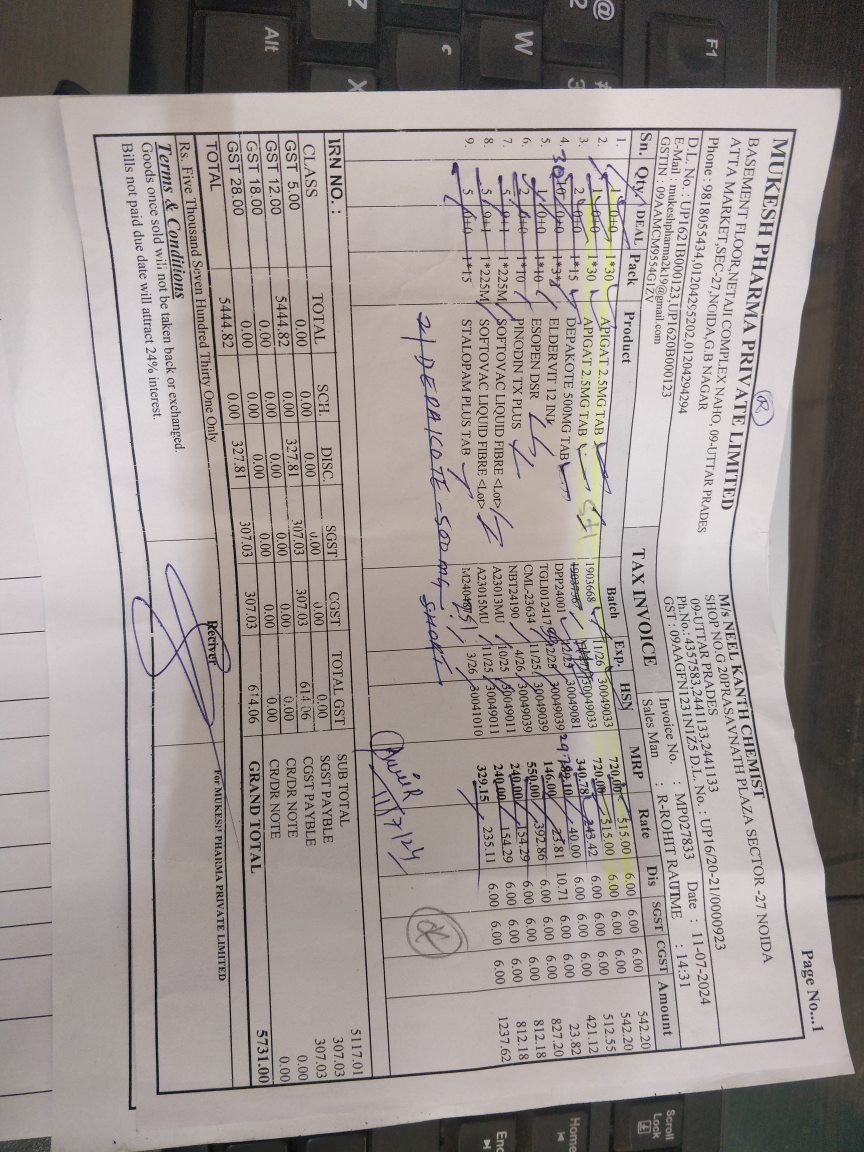 Page No...1
MUKESH PHARMA PRIVATE LIMITED
BASEMENT FLOOR,NETAJI COMPLEX NAHO, 09-UTTAR PRADES
ATTA MARKET,SEC-27,NOIDA,G.B NAGAR
Phone : 9818055434,01204295202,01204294294
D.L. No. : UP1621B000123,UP1620B000123
E-Mail : mukeshpharma2k19@gmail.com
GSTIN : 09AAMCM9554G1ZV
R
TAX INVOICE
M/s NEEL KANTH CHEMIST
SHOP NO.G 20PRASAVNATH PLAZA SECTOR -27 NOIDA
09-UTTAR PRADES
Ph.No.: 4357583,2441133,2441133
GST : 09AAGFN1231N1Z5 D.L. No. : UP16/20-21/0000923
Invoice No. : MP027833 Date : 11-07-2024
Sales Man : R-ROHIT RAUTIME : 14:31
Sn. Qty DEAL Pack Product Batch Exp. HSN MRP Rate Dis SGST CGST Amount
1. 1 0+0 1*30 APIGAT 2.5MG TAB 1903668 11/26 30049033 720.00 515.00 6.00 6.00 6.00 542.20
2. 1 0+0 1*30 APIGAT 2.5MG TAB 30049033 720.00 515.00 6.00 6.00 6.00 542.20
3. 2 0+0 1*15 DEPAKOTE 500MG TAB DPP24001 12/25 30049081 340.78 243.42 6.00 6.00 6.00 512.55
4. 30 ELDERVIT 12 INJ TGLI012417 12/25 30049039 40.00 10.71 6.00 6.00 421.12
5. 1 0+0 1*10 ESOPEN DSR CML-23634 11/25 30049039 146.00 23.81 6.00 6.00 6.00 23.82
6. 2 0+0 1*10 PINODIN TX PLUS NBT24190 4/26 30049039 550.00 392.86 6.00 6.00 6.00 827.20
7. 5 9+1 1*225M SOFTOVAC LIQUID FIBRE <Lot> A23013MU 10/25 30049011 240.00 154.29 6.00 6.00 6.00 812.18
8. 5 9+1 1*225M SOFTOVAC LIQUID FIBRE <Lot> A23015MU 11/25 30049011 240.00 154.29 6.00 6.00 6.00 812.18
9. 5 0+0 1*15 STALOPAM PLUS TAB 3/26 30041010 329.15 235.11 6.00 6.00 6.00 1237.62
2) DEPAKOTE-500mg SHORT
11/7/24
IRN NO. :
CLASS TOTAL SCH. DISC. SGST CGST TOTAL GST
GST 5.00 0.00 0.00 0.00 0.00 0.00 0.00
GST 12.00 5444.82 0.00 327.81 307.03 307.03 614.06
GST 18.00 0.00 0.00 0.00 0.00 0.00 0.00
GST 28.00 0.00 0.00 0.00 0.00 0.00 0.00
TOTAL 5444.82 0.00 327.81 307.03 307.03 614.06
SUB TOTAL 5117.01
SGST PAYBLE 307.03
CGST PAYBLE 307.03
CR/DR NOTE 0.00
CR/DR NOTE 0.00
GRAND TOTAL 5731.00
Rs. Five Thousand Seven Hundred Thirty One Only
Terms & Conditions
Goods once sold will not be taken back or exchanged.
Bills not paid due date will attract 24% interest.
Reciver
For MUKESH PHARMA PRIVATE LIMITED
F1
@
2
#
3
W
Z
X
Alt
Scroll
Lock
Home
End